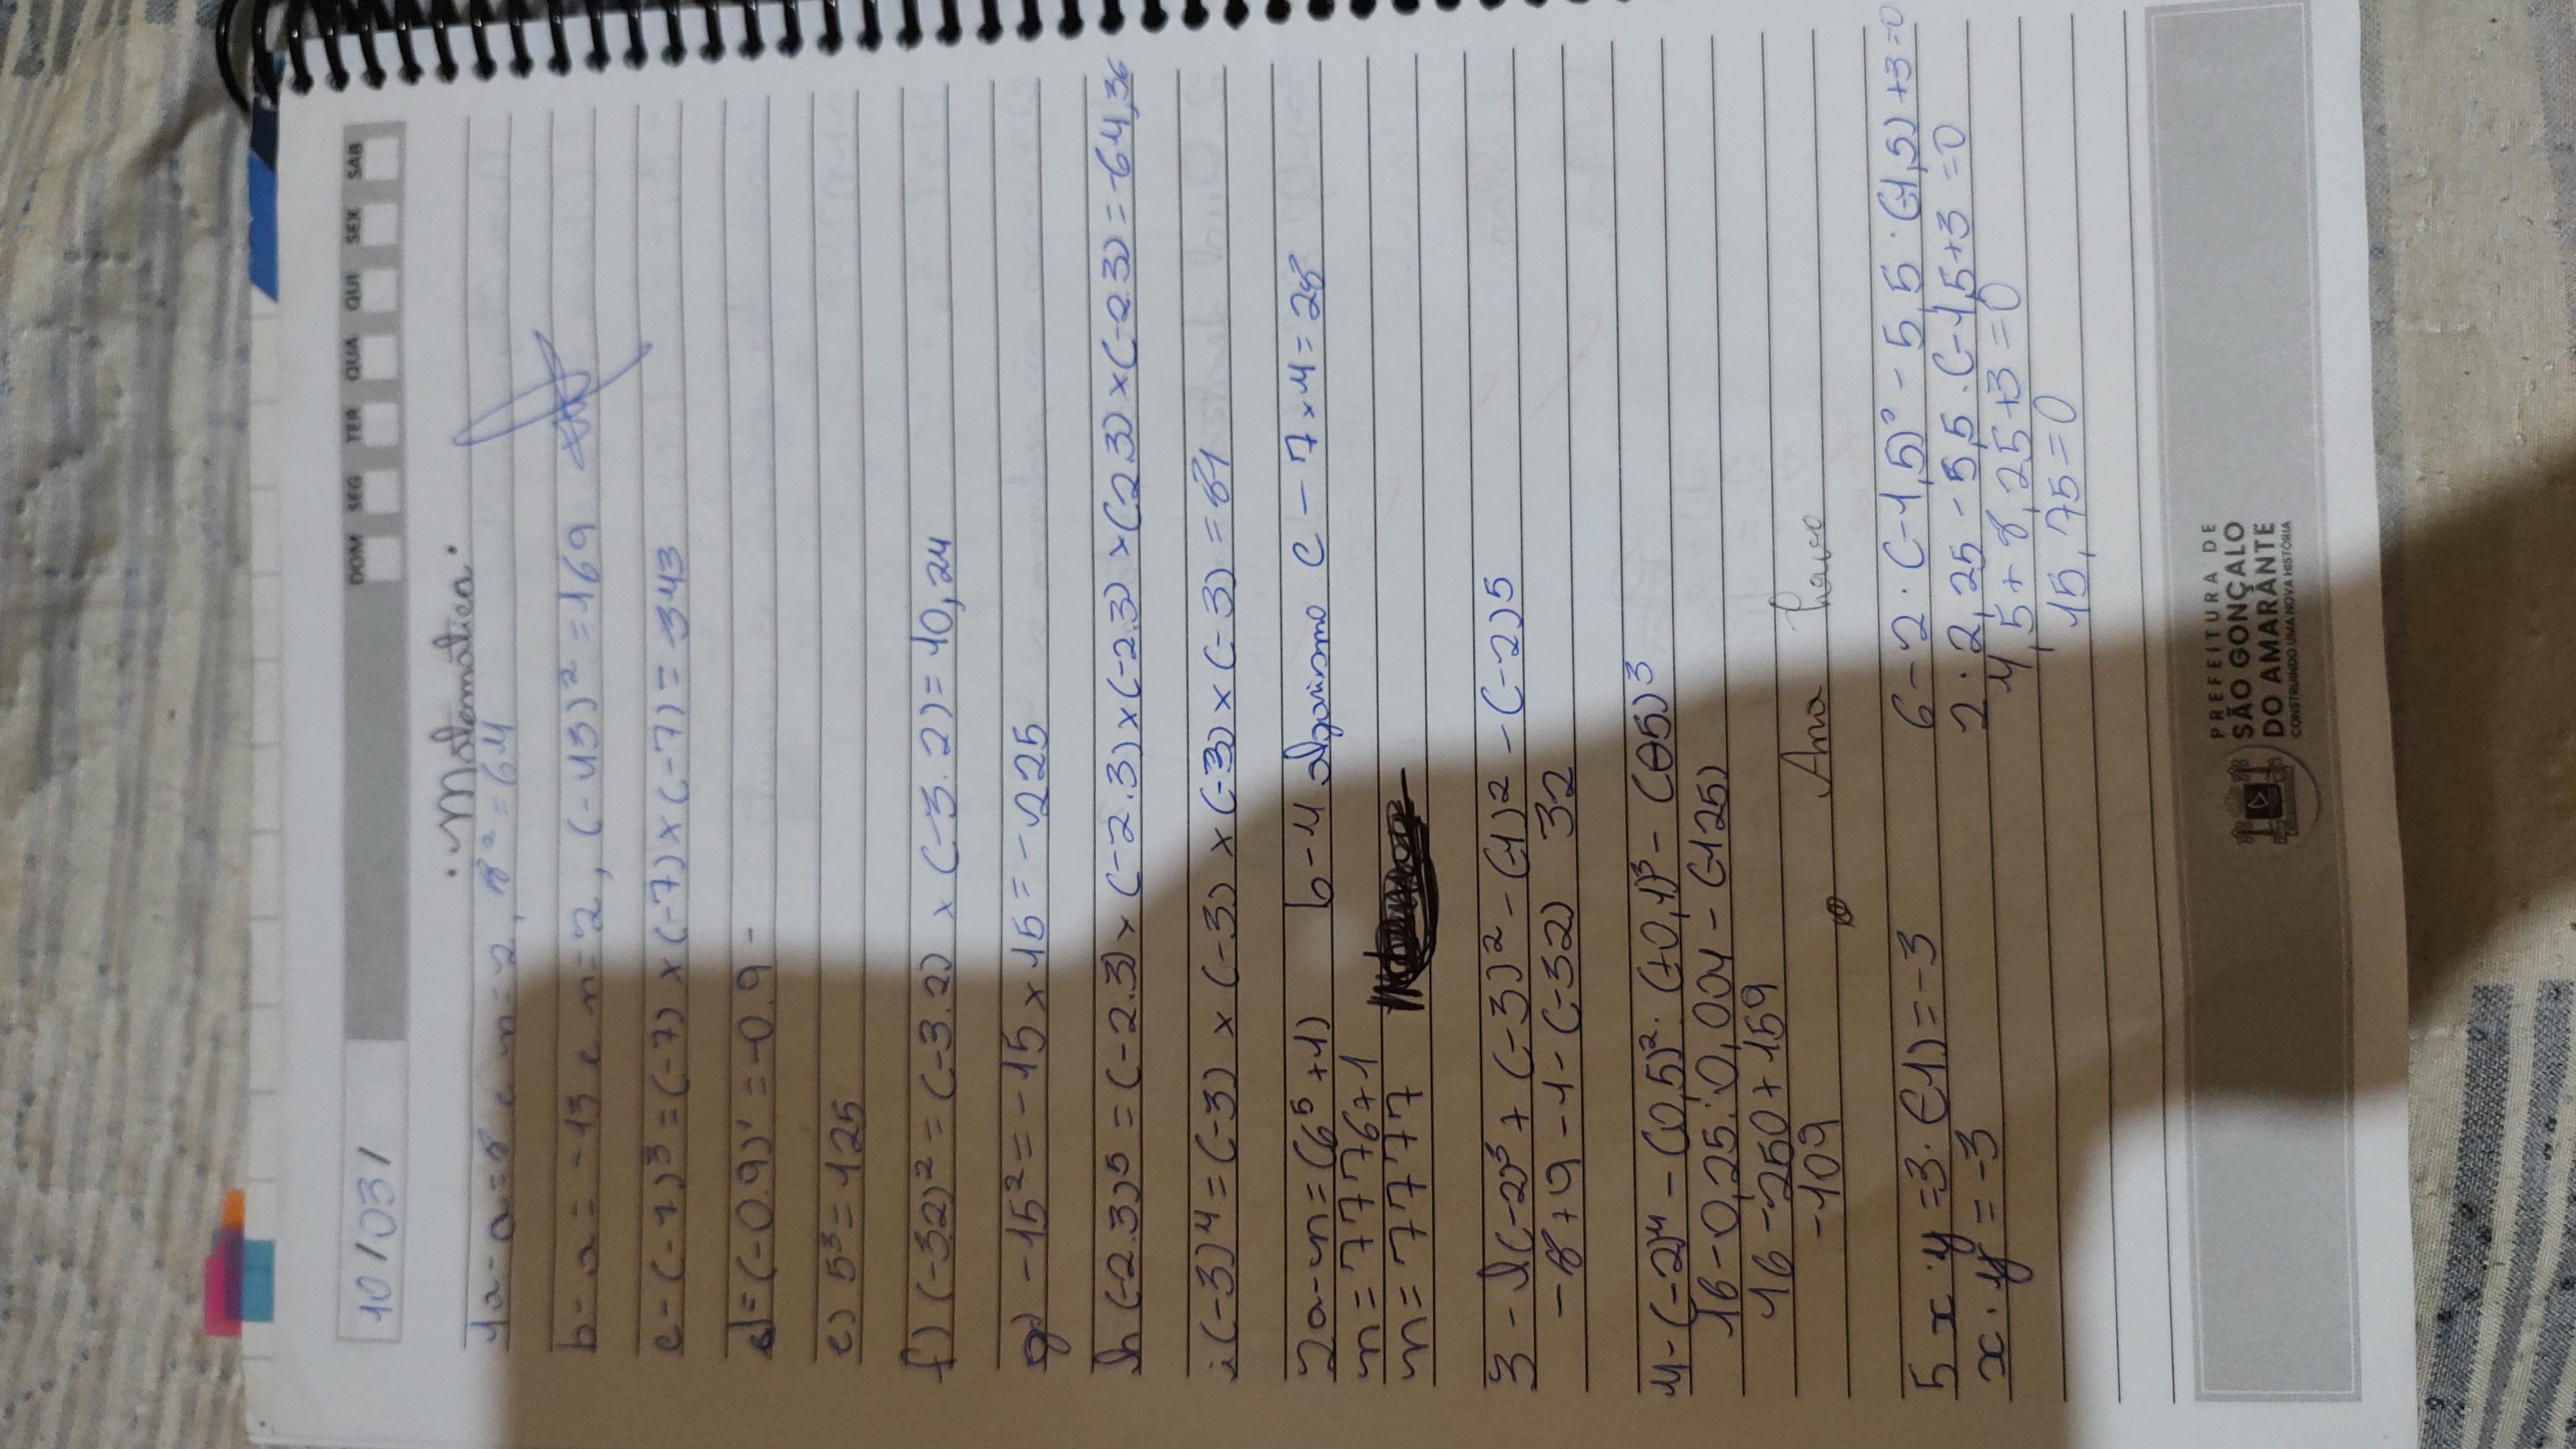 10/03/
DOM SEG TER QUA QUI SEX SAB
"Matemática"
1a- a=8 e n=2, 8²=64
b- a=-13 e n=2, (-13)²=169
c- (-7)³=(-7)×(-7)×(-7)=-343
d=(-0.9)¹=-0.9-
e) 5³=125
f) (-3.2)²=(-3.2)×(-3.2)=10,24
g) -15²=-15×15=-225
h (-2.3)5=(-2.3)×(-2.3)×(-2.3)×(2.3)×(-2.3)=-64,36
i (-3)4=(-3)×(-3)×(-3)×(-3)=81
2a-n=(6⁵+1) b-4 algarismo c-7×4=28
n=7776+1
n=7777
3- (-2)³+(-3)²-(-1)²-(-2)5
-8+9-1-(-32) 32
4-(-2)4-(0,5)². (+0,1)³-(-5)³
16-0,25:0,001-(-125)
16-250+159
-109
Ana
5 x.y=3.(-1)=-3
x.y=-3
6-2.(-1,5)²-5,5.(-1,5)+3=0
2.2,25-5,5.(-1,5+3=0
4,5+8,25+3=0
15,75=0
PREFEITURA DE
SÃO GONÇALO
DO AMARANTE
CONSTRUINDO UMA NOVA HISTÓRIA